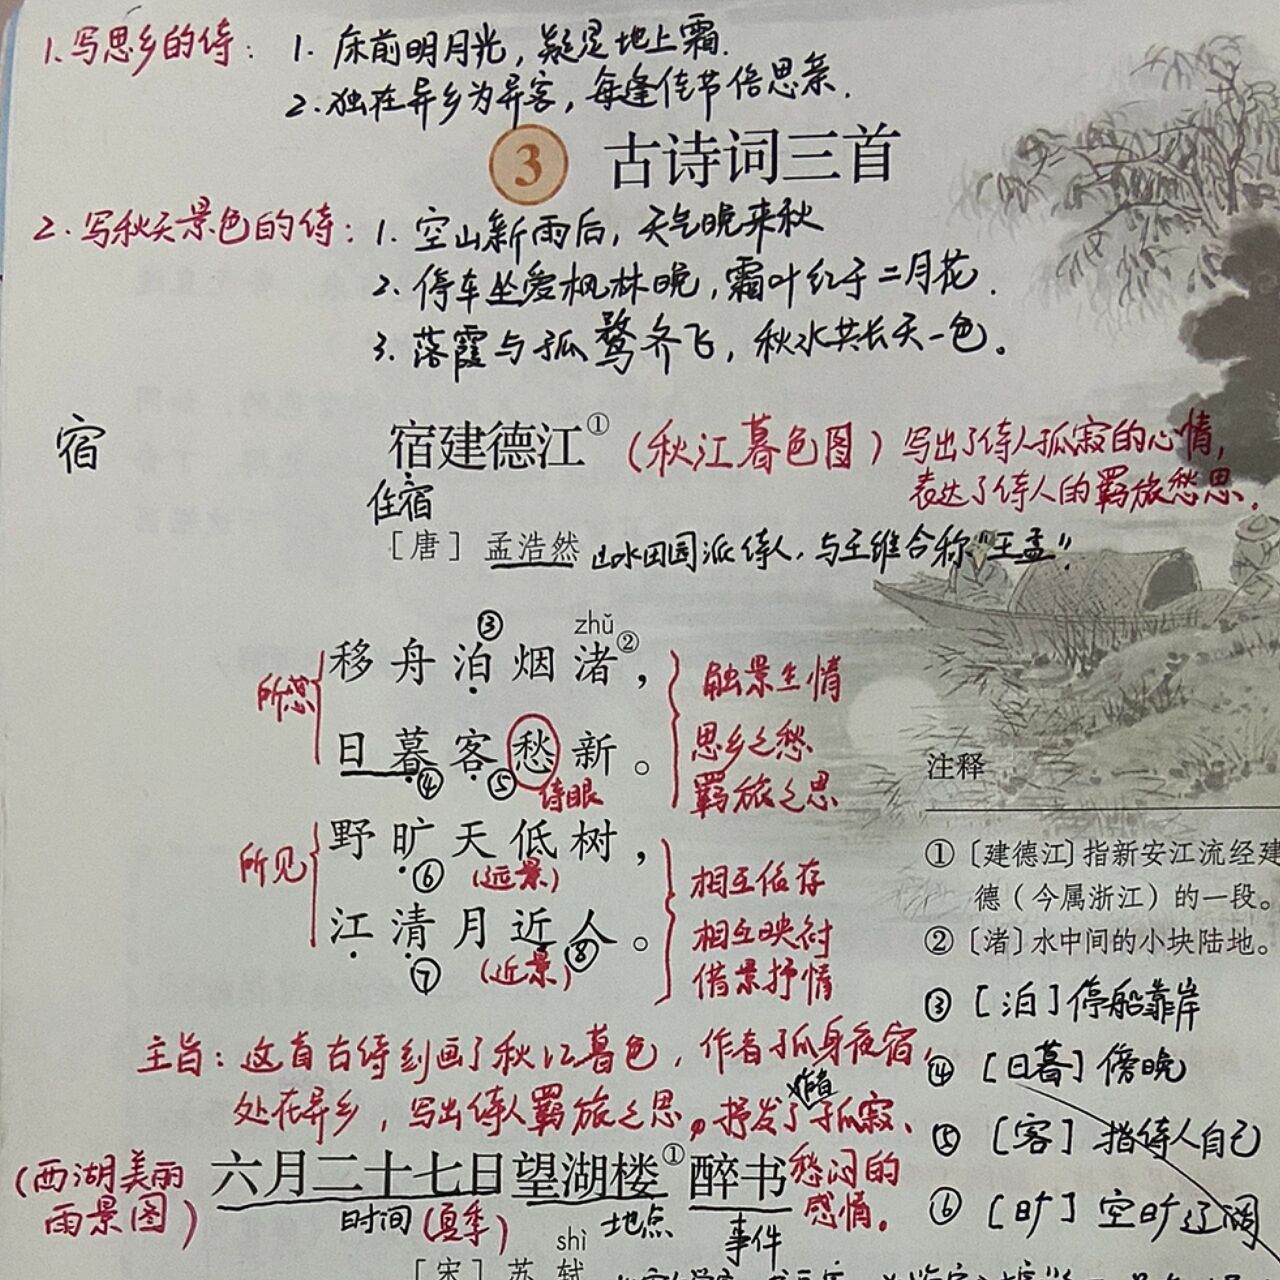 1.写思乡的诗：1. 床前明月光，疑是地上霜.
2.独在异乡为异客，每逢佳节倍思亲.
3 古诗词三首
2.写秋天景色的诗：1. 空山新雨后，天气晚来秋
2. 停车坐爱枫林晚，霜叶红于二月花.
3. 落霞与孤鹜齐飞，秋水共长天一色。
宿
宿建德江①（秋江暮色图）写出了诗人孤寂的心情，
表达了诗人的羁旅愁思。
住宿
［唐］孟浩然 山水田园派诗人.与王维合称“王孟”.
③ zhǔ
所想 移舟泊烟渚②，
日暮客愁新。
④ ⑤ 诗眼
触景生情
思乡之愁
羁旅之思
所见 野旷天低树，
⑥（远景）
江清月近人。
⑦（近景）⑧
相互依存
相互映衬
借景抒情
注释
①［建德江］指新安江流经建
德（今属浙江）的一段。
②［渚］水中间的小块陆地。
③［泊］停船靠岸
④［日暮］傍晚
⑤［客］指诗人自己
⑥［旷］空旷辽阔
主旨：这首古诗刻画了秋江暮色，作者孤身夜宿，
处在异乡，写出诗人羁旅之思，抒发了作者孤寂、
愁闷的
感情。
（西湖美丽
雨景图）
六月二十七日望湖楼①醉书
时间（夏季） 地点 事件
shì
［宋］苏轼